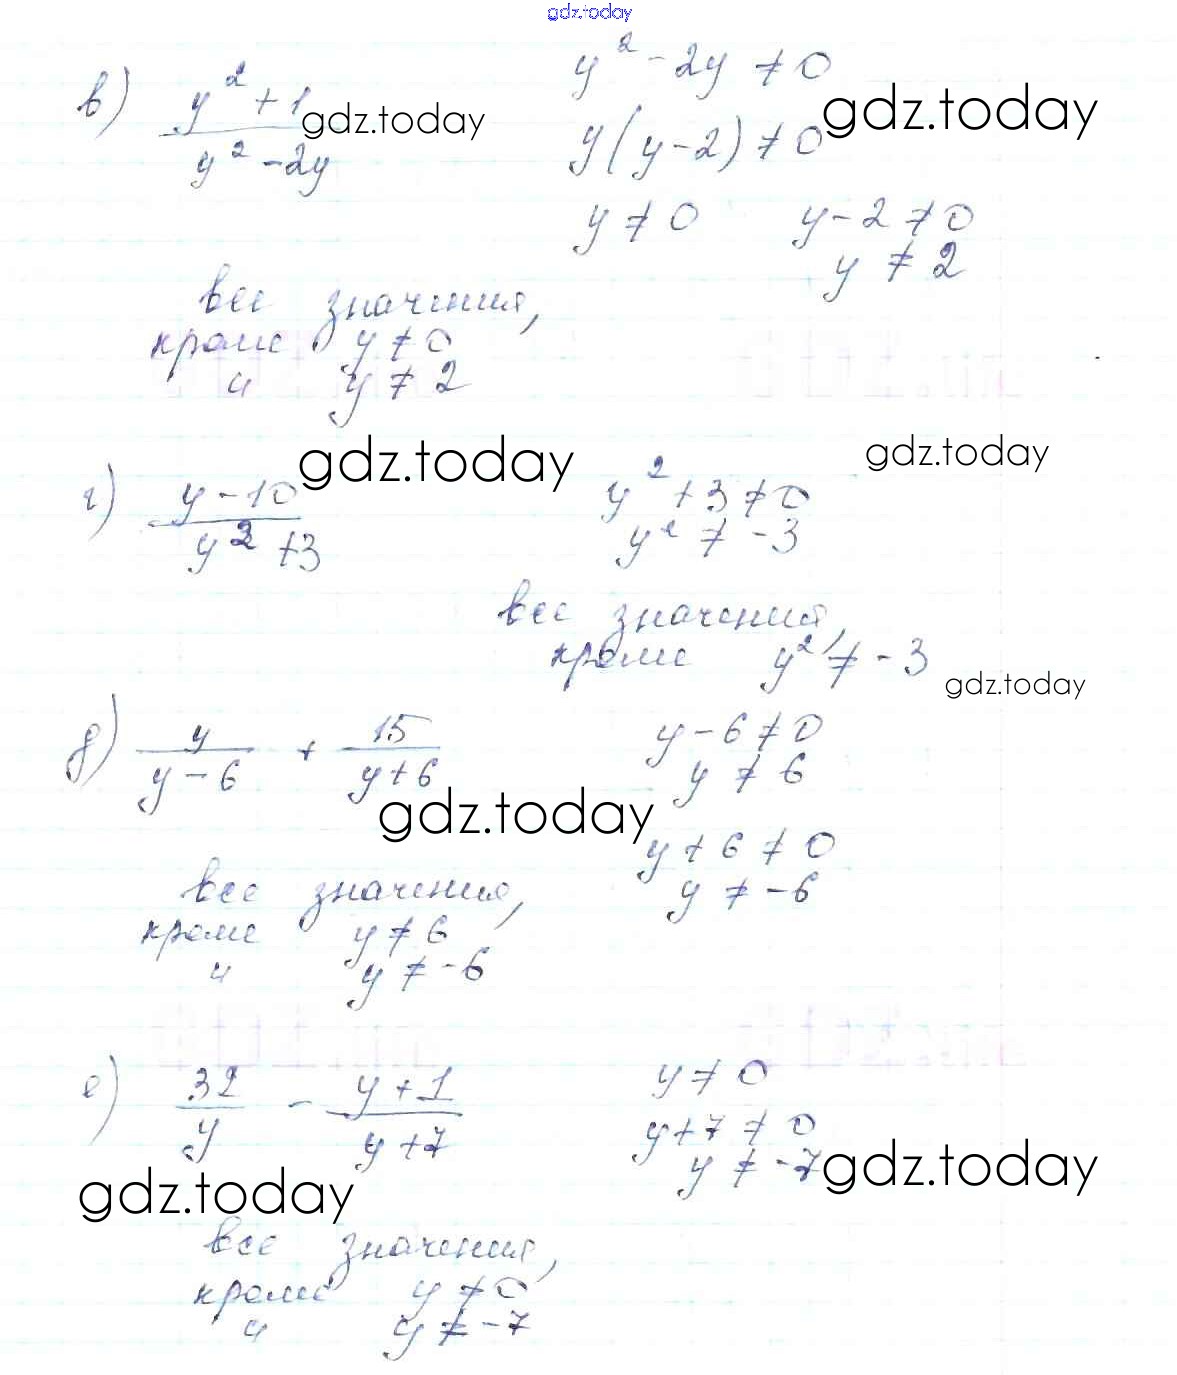 gdz.today
в) (y² + 1)/(y² - 2y) gdz.today
y² - 2y ≠ 0
y(y - 2) ≠ 0 gdz.today
y ≠ 0 y - 2 ≠ 0
y ≠ 2
все значения,
кроме y ≠ 0
и y ≠ 2
gdz.today
gdz.today
г) (y - 10)/(y² + 3)
y² + 3 ≠ 0
y² ≠ -3
все значения,
кроме y² ≠ -3
gdz.today
д) y/(y - 6) + 15/(y + 6)
y - 6 ≠ 0
y ≠ 6
gdz.today
y + 6 ≠ 0
y ≠ -6
все значения,
кроме y ≠ 6
и y ≠ -6
е) 32/y - (y + 1)/(y + 7)
y ≠ 0
y + 7 ≠ 0
y ≠ -7 gdz.today
gdz.today
все значения,
кроме y ≠ 0
и y ≠ -7